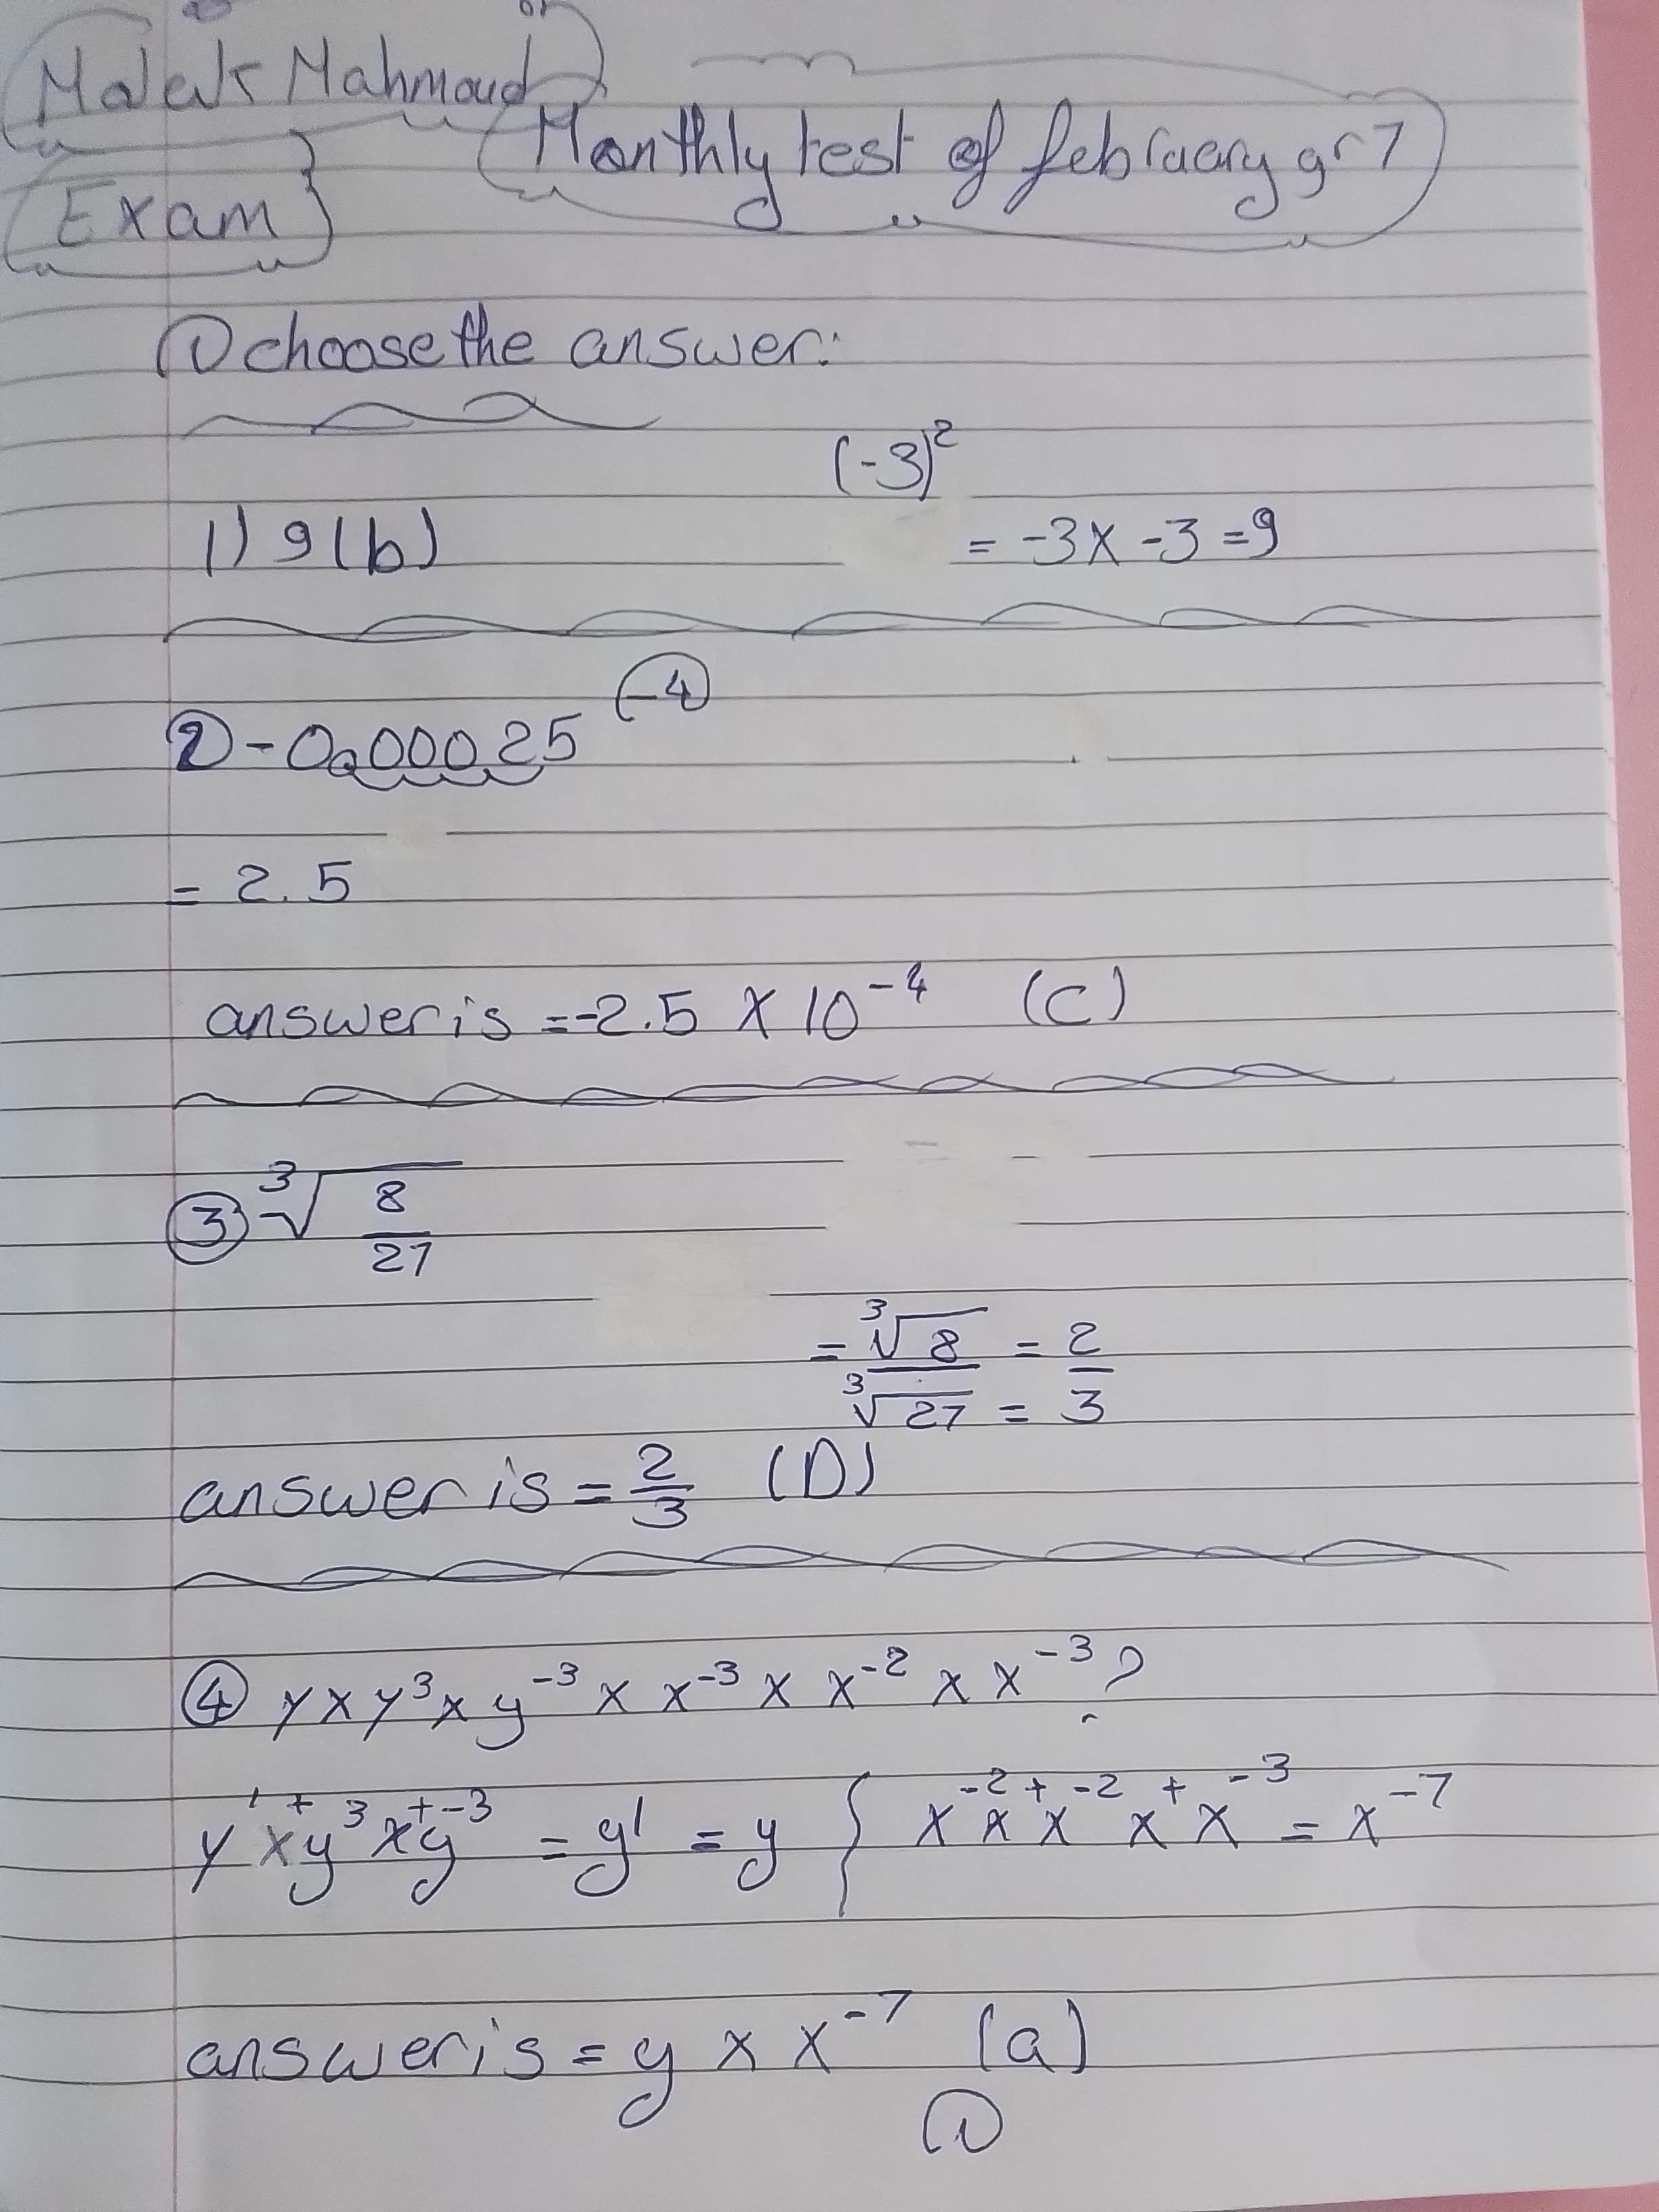 Malak Mahmoud
Monthly test of february gr 7
Exam
① choose the answer:
(-3)²
1) 9 (b)
= -3 x -3 = 9
② -0.00025 (-4)
= 2.5
answer is = -2.5 x 10⁻⁴ (C)
③ ³√8/27
= ³√8/³√27 = 2/3
answer is = 2/3 (D)
④ y x y³ x y⁻³ x x⁻³ x x⁻² x x⁻³ ?
y¹ x⁺ y³ x⁺ y⁻³ = y¹ = y { x⁻² x⁺ x⁻² x⁺ x⁻³ = x⁻⁷
answer is = y x x⁻⁷ (a)
①